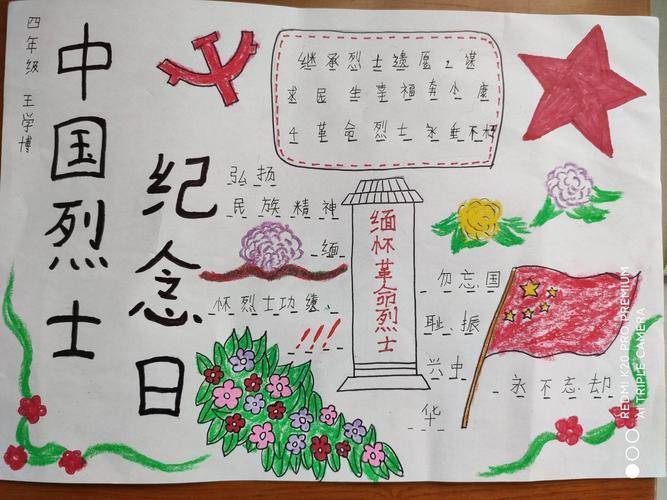 四年级 王学博
中国烈士
纪念日
继承烈士遗愿,谋
求民生幸福奔小康
革命烈士永垂不朽
弘扬
民族精神
缅
怀烈士功绩、
!!!
缅怀革命烈士
勿忘国
耻、振
兴中
华
永不忘却
REDMI K20 PRO PREMIUM
AI TRIPLE CAMERA